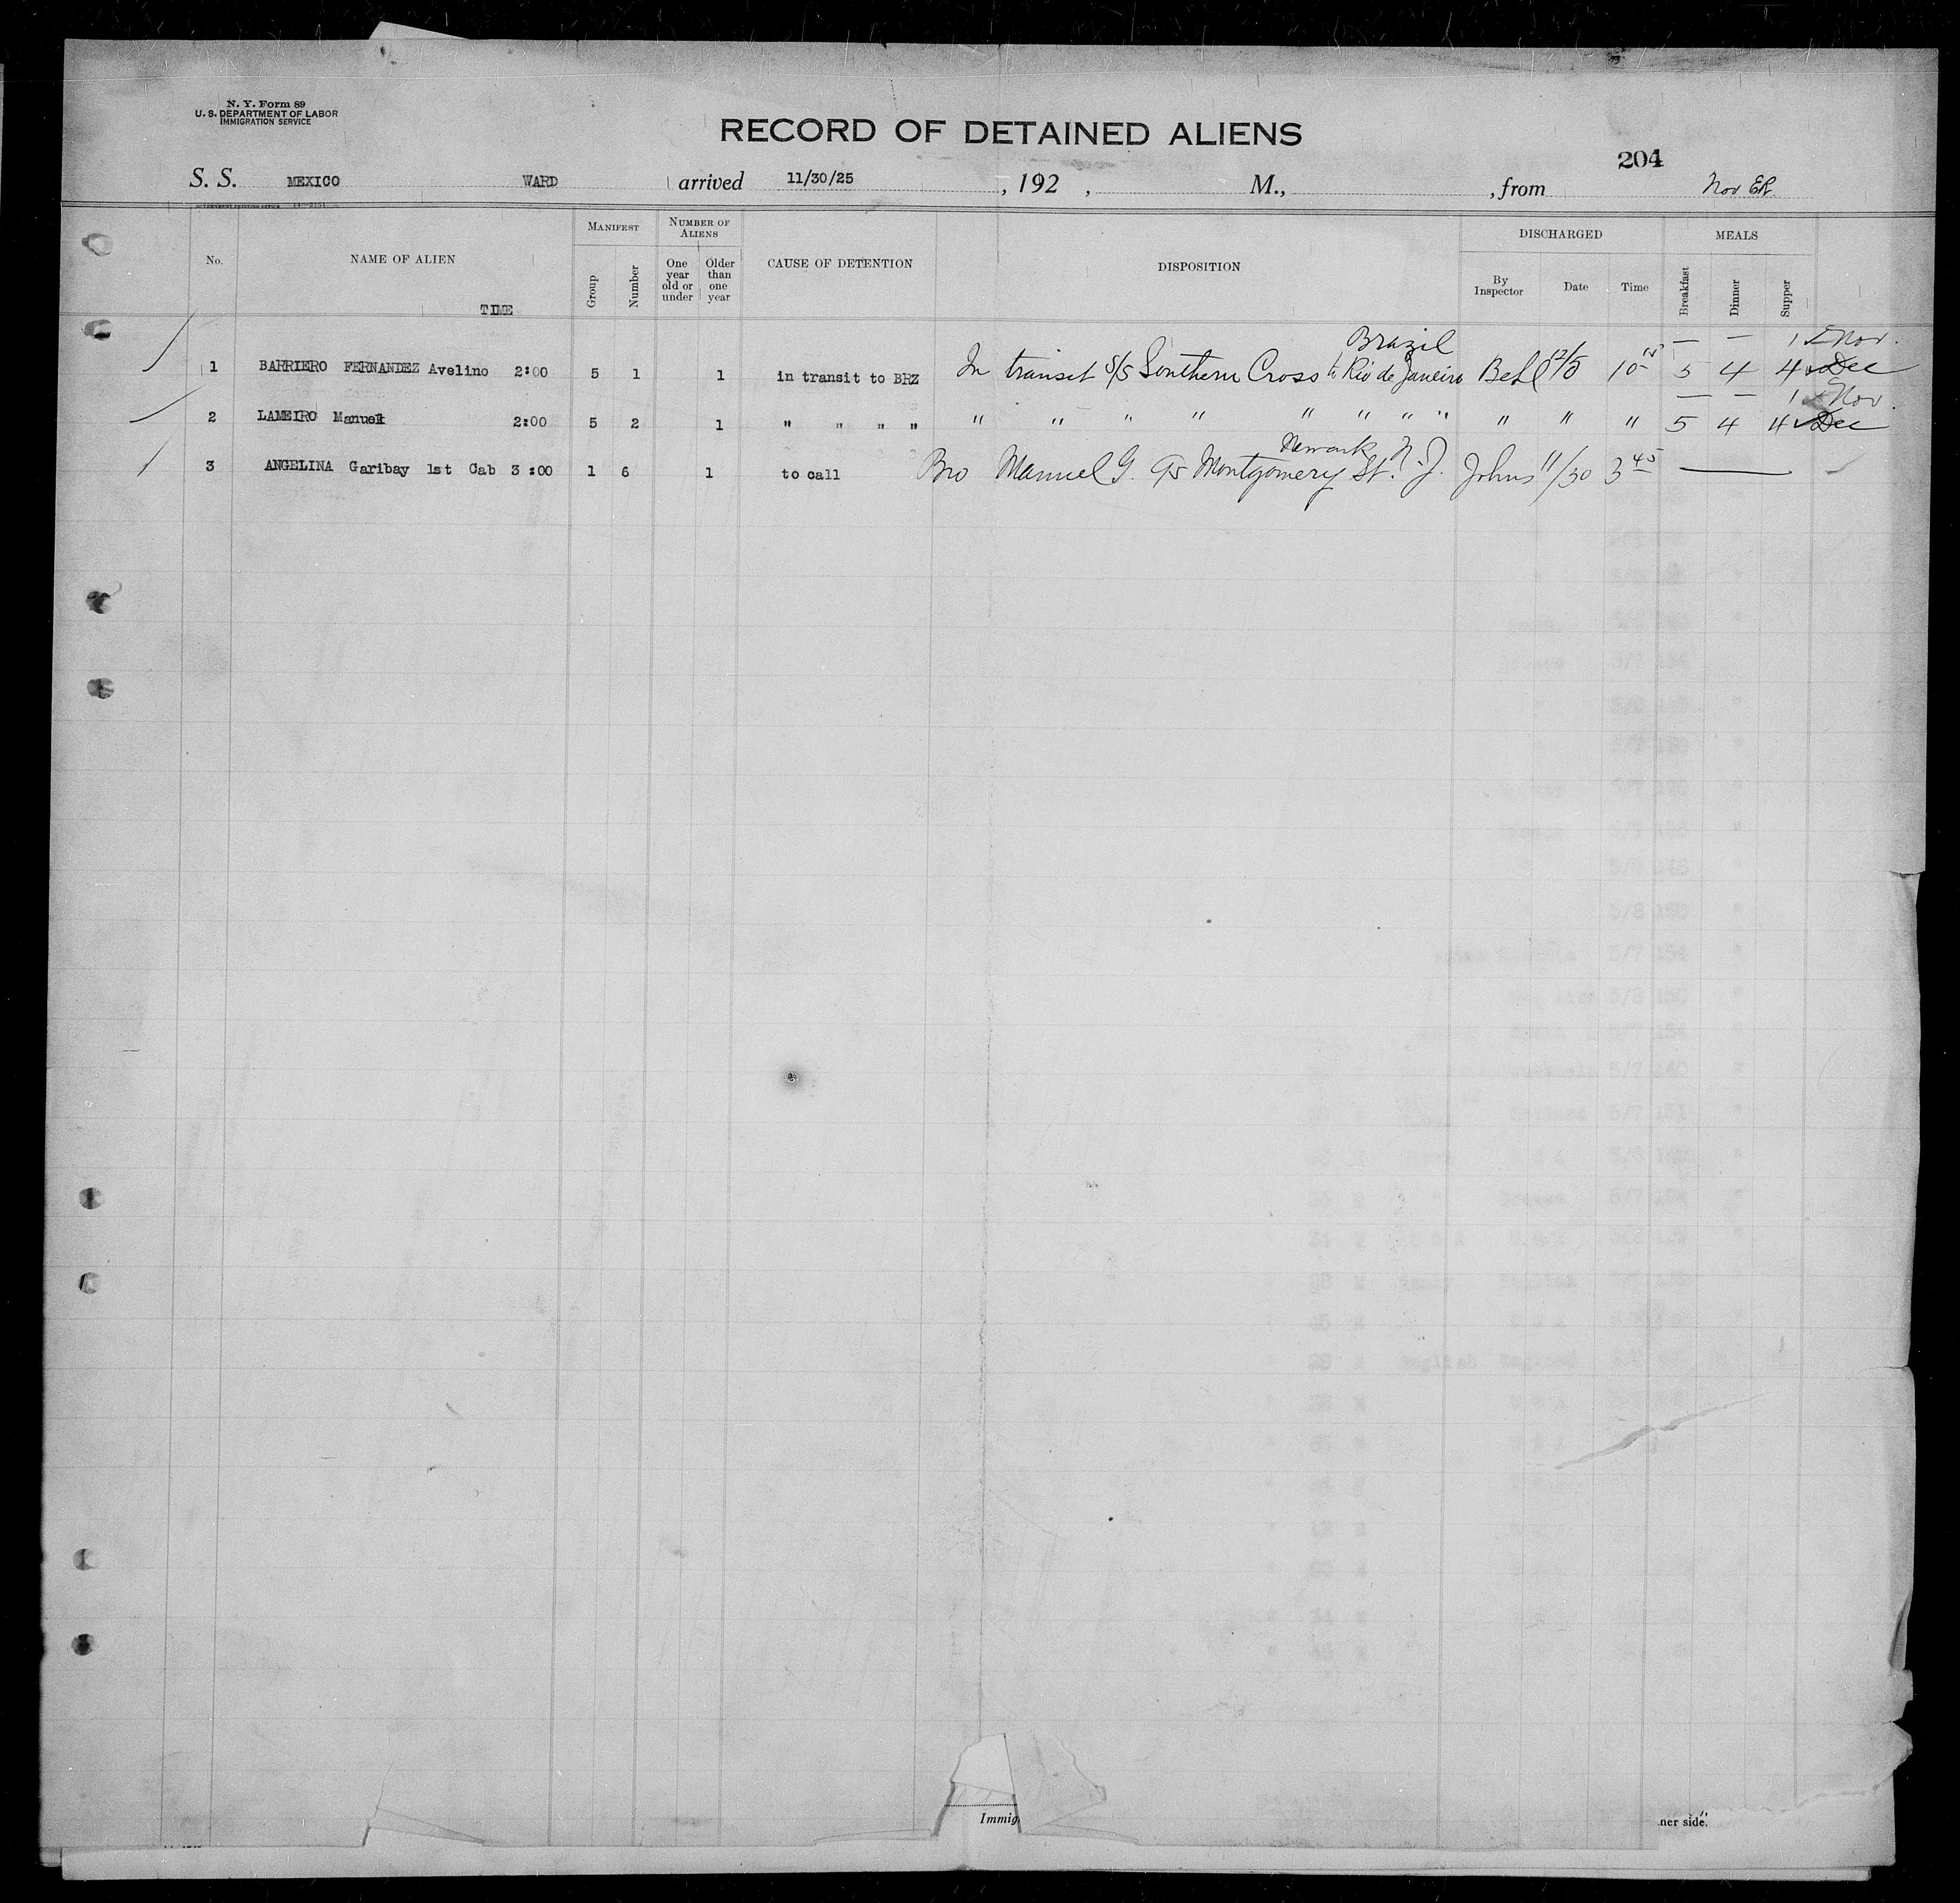 N. Y. Form 89
U. S. DEPARTMENT OF LABOR
IMMIGRATION SERVICE
RECORD OF DETAINED ALIENS
204
S. S. MEXICO WARD arrived 11/30/25, 192 , M., , from Nov ER.
No. NAME OF ALIEN TIME MANIFEST Group Number NUMBER OF ALIENS One year old or under Older than one year CAUSE OF DETENTION DISPOSITION DISCHARGED By Inspector Date Time MEALS Breakfast Dinner Supper
Brazil — — 1 Nov.
1 BARRIERO FERNANDEZ Avelino 2:00 5 1 1 in transit to BRZ In transit S/S Southern Cross to Rio de Janeiro 12/5 10 5 4 4 Dec
— — 1 Nov.
2 LAMEIRO Manuel 2:00 5 2 1 " " " " " " " " " " " " " " " 5 4 4 Dec
Newark N.J.
3 ANGELINA Garibay 1st Cab 3:00 1 6 1 to call Bro Manuel G. 95 Montgomery St. Johns 11/30 3 45 ———
Immig
ner side.